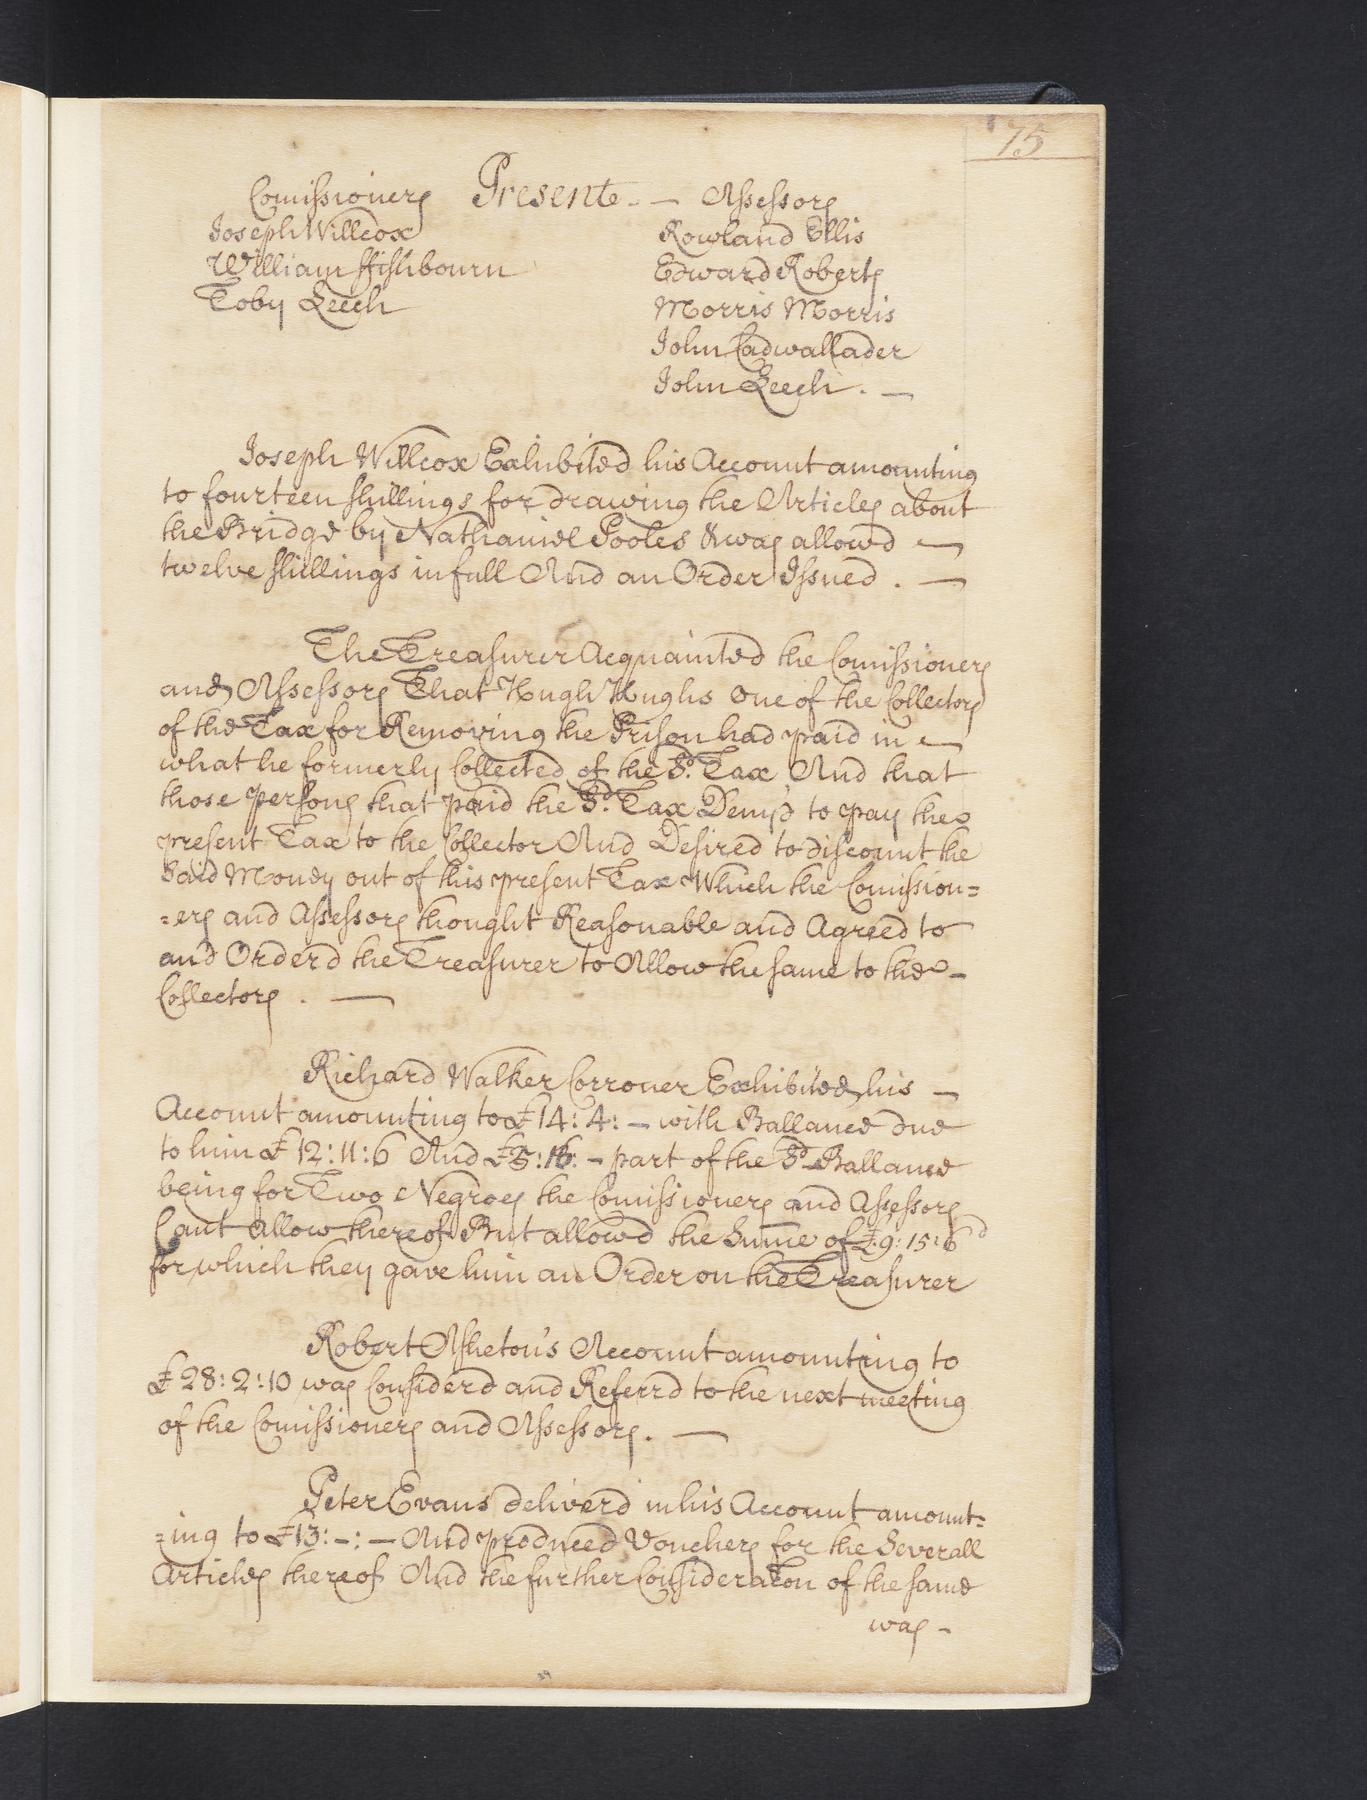 75
Comissioners Presente - — Assessors
Joseph Willcox Rowland Ellis
William ffishbourn Edward Roberts
Toby Leech Morris Morris
John Cadwallader
John Leech . —
Joseph Willcox Exhibited his Account amounting
to fourteen shillings for drawing the Articles about
the Bridge by Nathaniel Pooles & was allowd —
twelve shillings in full And an Order Issued . —
The Treasurer Acquainted the Comissioners
and Assessors That Hugh Hughs one of the Collectors
of the Tax for Removing the Prison had paid in —
what he formerly Collected of the Sd. Tax And that
those persons that paid the Sd. Tax Deny'd to pay the
present Tax to the Collector And Desired to discount the
Said Money out of this present Tax Which the Comission=
=ers and Assessors thought Reasonable and Agreed to
and Orderd the Treasurer to Allow the same to the -
Collectors . —
Richard Walker Corroner Exhibited his —
Account amounting to £14: 4: — with Ballance due
to him £ 12: 11: 6 And £ : 16: - part of the Sd Ballance
being for Two Negroes the Comissioners and Assessors
Cant allow thereof But allowd the Sume of £ 9: 15: 6d
for which they gave him an Order on the Treasurer
Robert Asheton's Account amounting to
£ 28: 2: 10 was Considerd and Referrd to the next meeting
of the Comissioners and Assessors . —
Peter Evans deliverd in his Account amount=
=ing to £13: -: — And produced Vouchers for the Severall
Articles thereof And the further Consideration of the same
was -